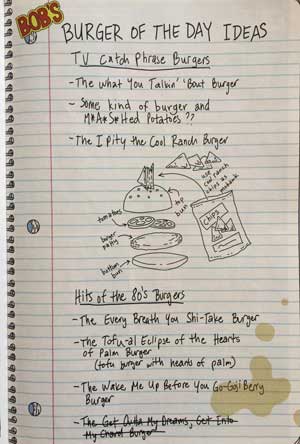 BOB'S
BURGER OF THE DAY IDEAS
TV Catch Phrase Burgers
- The What You Talkin' 'Bout Burger
- Some kind of burger and
M*A*S*Hted Potatoes??
- The I Pity the Cool Ranch Burger
use
cool ranch
chips as
mohawk
top
bun
tomatoes
burger
patty
bottom
bun
Chips
Hits of the 80's Burgers
- The Every Breath You Shi-Take Burger
- The Tofu-al Eclipse of the Hearts
of Palm Burger
(tofu burger with hearts of palm)
- The Wake Me Up Before You Go-Goji Berry
Burger
- The Get Outta My Dreams, Get Into
My Chard Burger